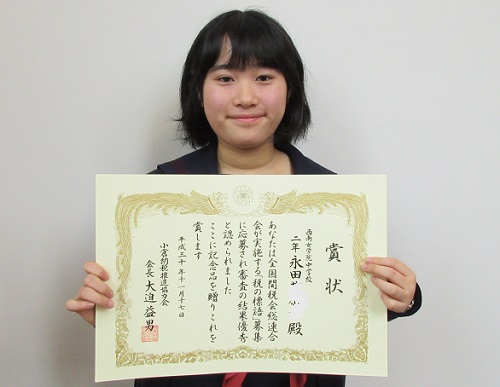 賞状
西南女学院中学校
二年 永田 殿
あなたは全国間税会総連合
会が実施する「税の標語」募集
に応募され審査の結果優秀
と認められました
ここに記念品を贈りこれを
賞します
平成三十年十一月十七日
小倉納税推進協力会
会長 大迫益男